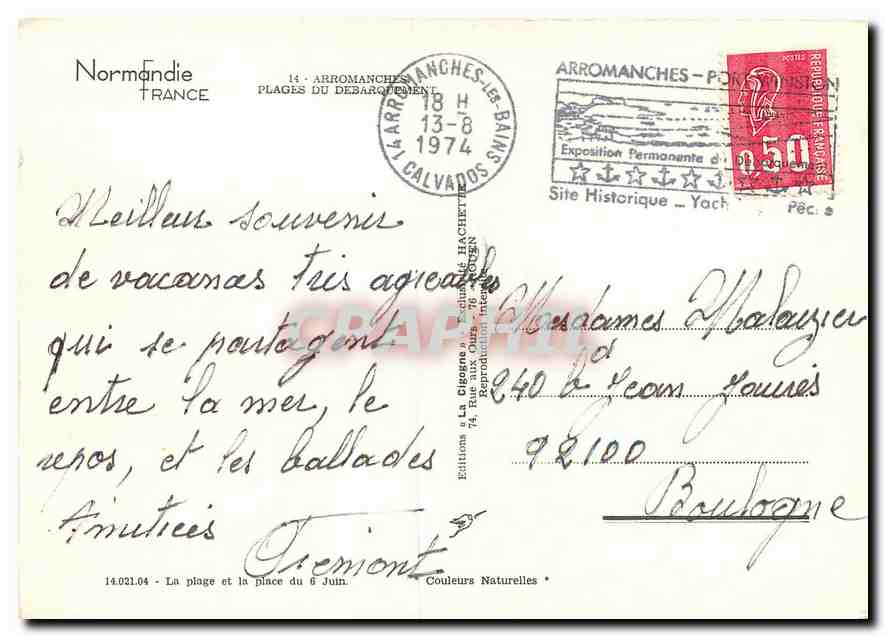 Normandie
FRANCE
14 - ARROMANCHES
PLAGES DU DEBARQUEMENT
14 ARROMANCHES-LES-BAINS
18 H
13-8
1974
CALVADOS
ARROMANCHES - PORT WINSTON
Exposition Permanente du Débarquement
Site Historique - Yach Pêche
POSTES
REPUBLIQUE FRANÇAISE
0,50
Meilleur souvenir
de vacances très agréables
qui se partagent
entre la mer, le
repos, et les ballades
Amitiés
Tremont
Editions « La Cigogne » - Exclusivité HACHETTE
74, Rue aux Ours - 76 - ROUEN
Reproduction interdite
CPAPHIL
Mesdames Malauzier
240 bd Jean Jaurés
92100
Boulogne
14.021.04 - La plage et la place du 6 Juin.
Couleurs Naturelles